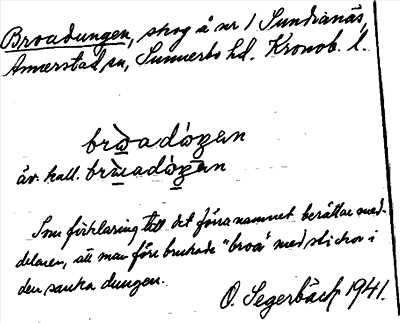 Broadungen, skog å nr 1 Sundranäs,
Annerstad sn, Sunnerbo hd. Kronob. l.
brωadòzen
äv. kall. brωadòzen
Som förklaring till det förra namnet berättar med-
delaren, att man före brukade "broa" med stickor i
den sanka dungen.
O. Segerbäck 1941.